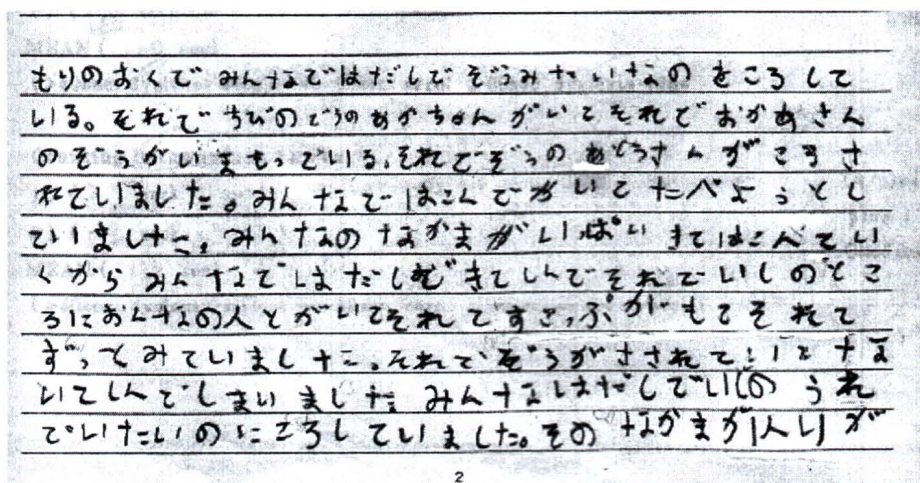 もりのおくで みんなではだしで ぞうみたいなのをころして
いる。それで ちびのぞうのあかちゃんがいてそれで おかあさん
のぞうがいまもっている。それでぞうのおとうさんがころさ
れていました。みんなではこんでかいてたべようとし
ていました。みんなのなかまがいっぱいきてはこんでい
くから みんなではだしできてしんでそれでいしのとこ
ろにおんなの人とがいてそれですこっぷがもてそれて
ずっとみていました。それでぞうがさされて な
いてしんでしまいました みんなはだしでいしのうえ
でいたいのにころしていました。そのなかまが1人りが
2